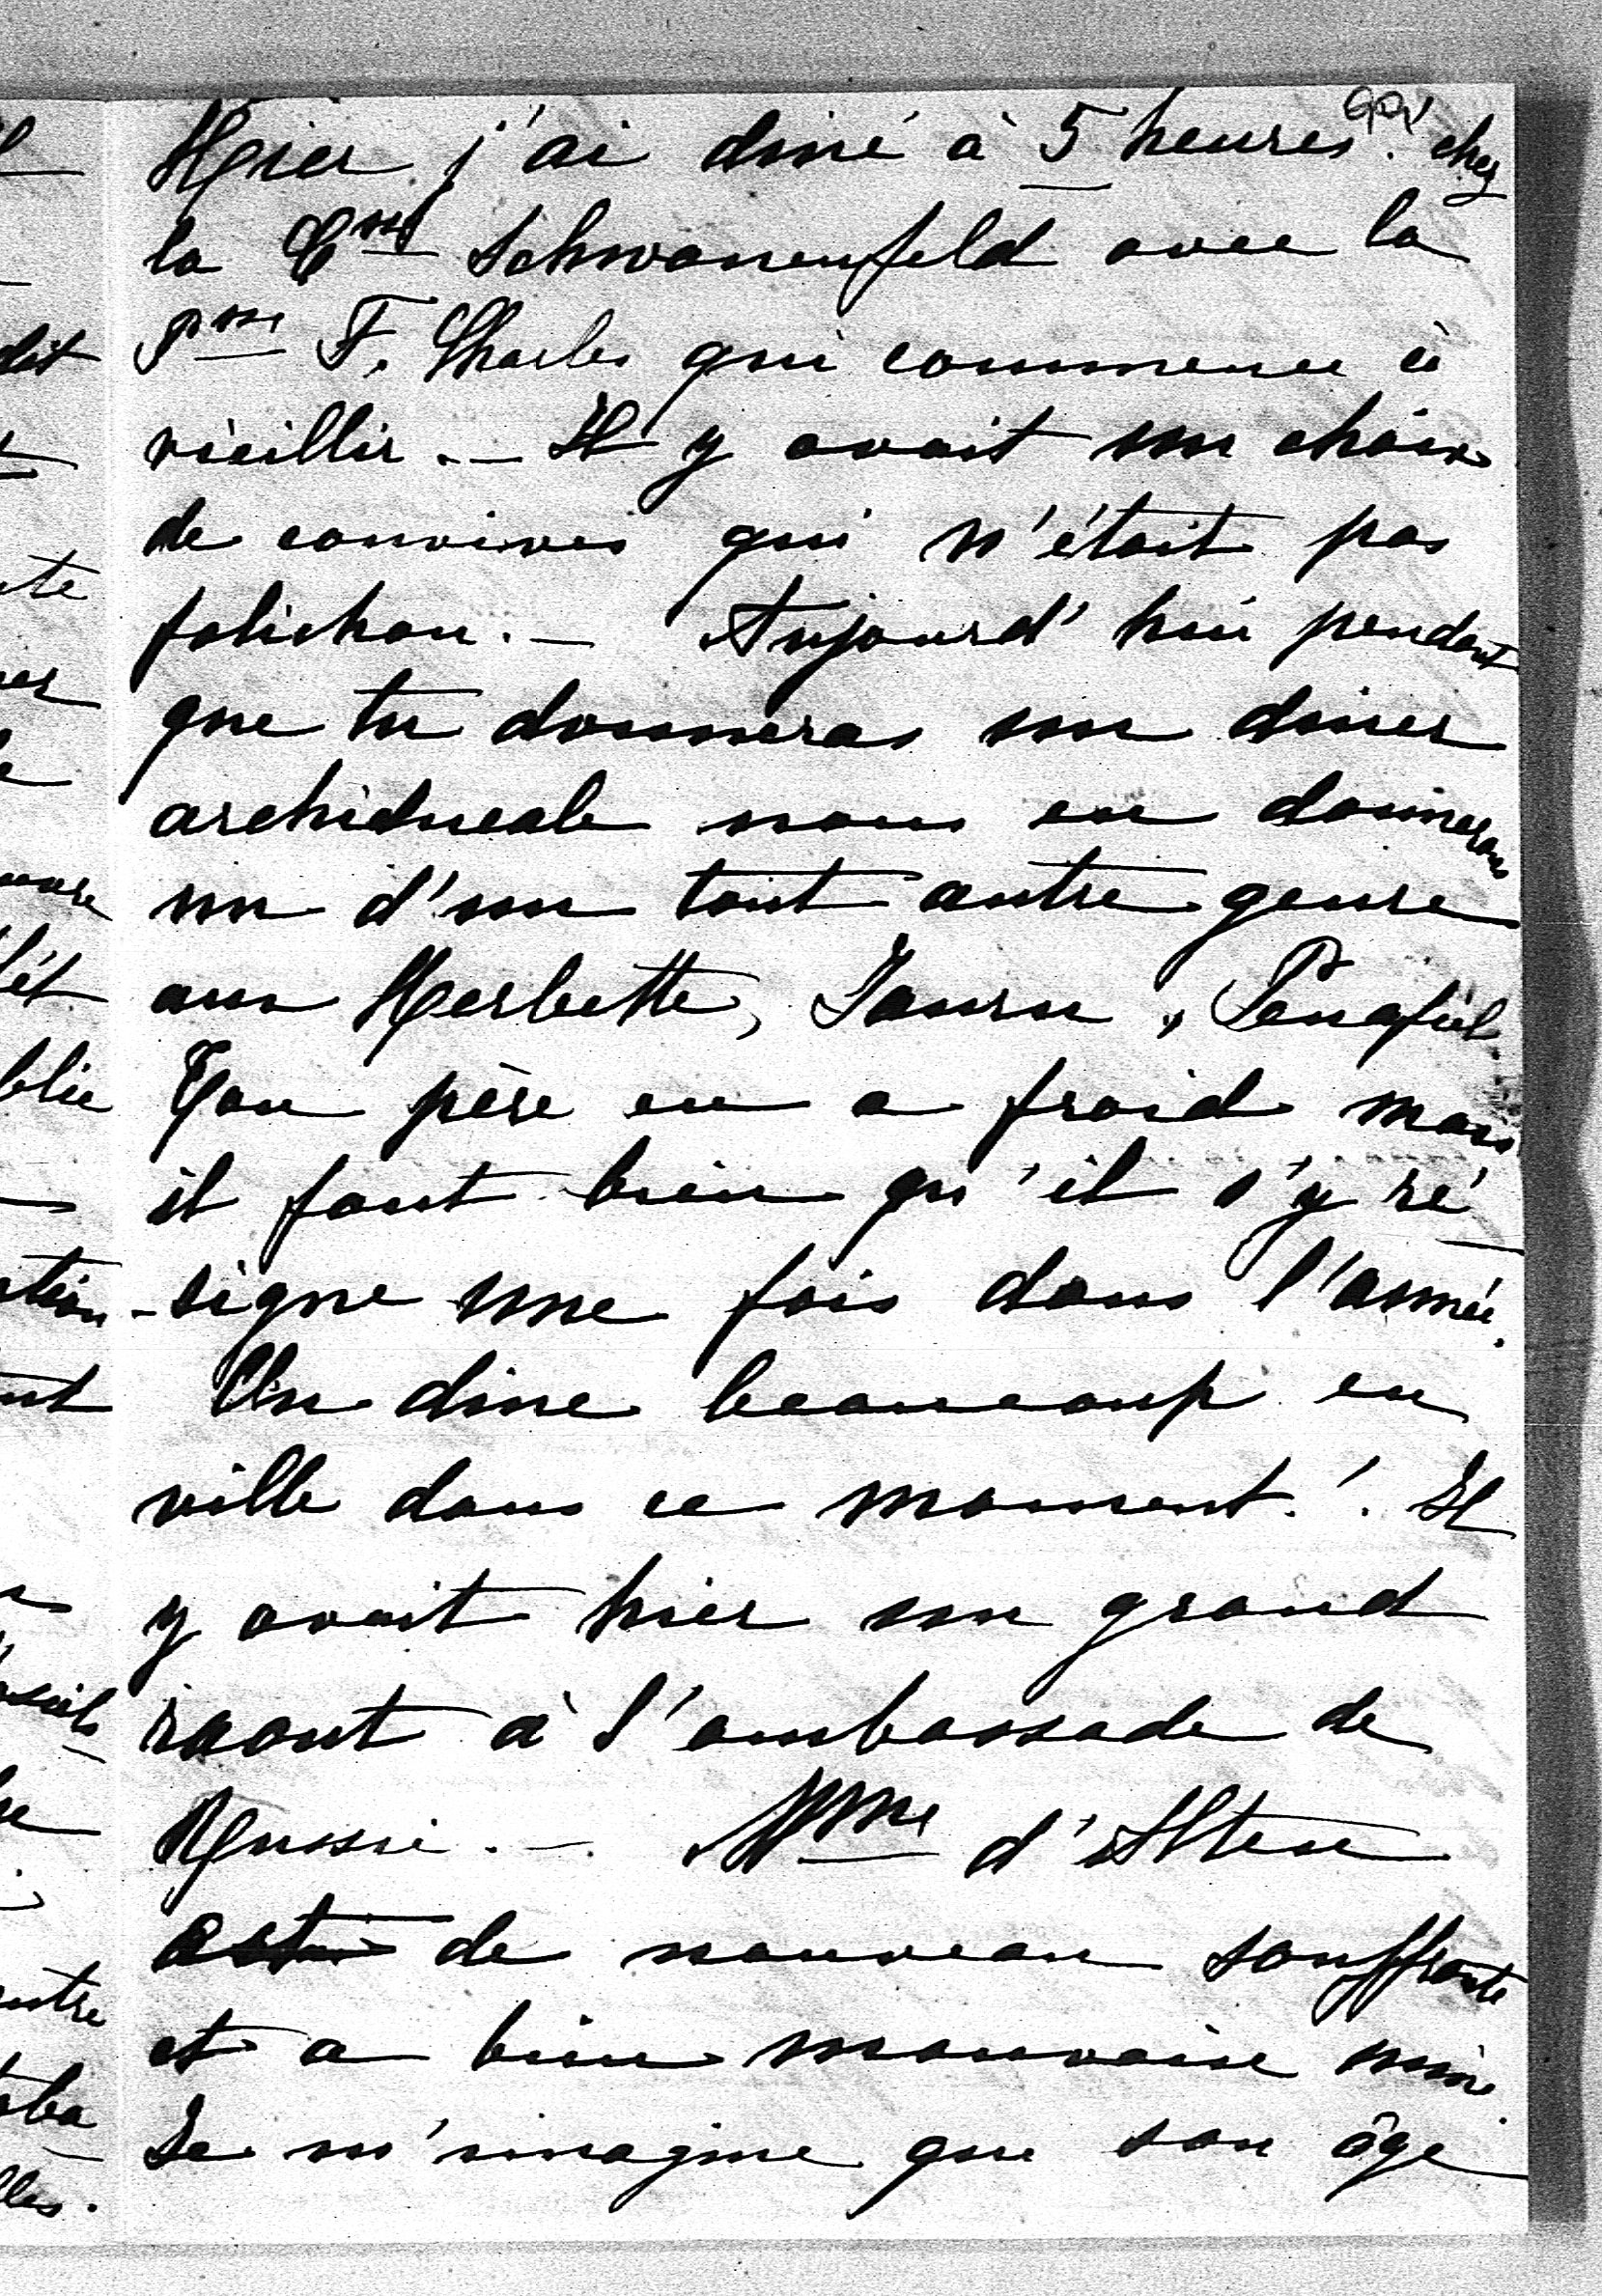 Hier j'ai diné à 5 heures! chez
la Csse Schwanenfeld avec la
Psse F. Charles qui commence à
vieillir. — Il y avait un choix
de convives qui n'était pas
folichon. — Aujourd'hui pendant
que tu donneras un diner
archiducale nous en donnerons
un d'un tout autre genre
aux Herbette, Penafiel.
Ton père en a froid mais
il faut bien qu'il s'y ré
-signe une fois dans l'année.
On dine beaucoup en
ville dans ce moment! Il
y avait hier un grand
raout à l'ambassade de
Russie. — Mme d'Alten
est de nouveau souffrante
et a bien mauvaise mine.
Je m'imagine que son âge